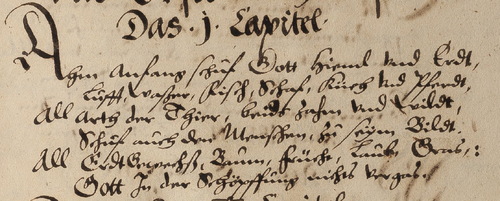 Das .j. Capitel.
Ahm Anfang schuf Gott Hieml vnd Erdt,
Lufft, waßer, Fisch, Schaf, Kuech vnd Pferdt,
All Arth der Thier, beide Zahm vnd Wildt,
Schuf auch den Menschen, zu seym Bildt.
All ErdtGewechß, Baum, früche, Laub, Gras,:
Gott In der Schöpffung nichts vergas.